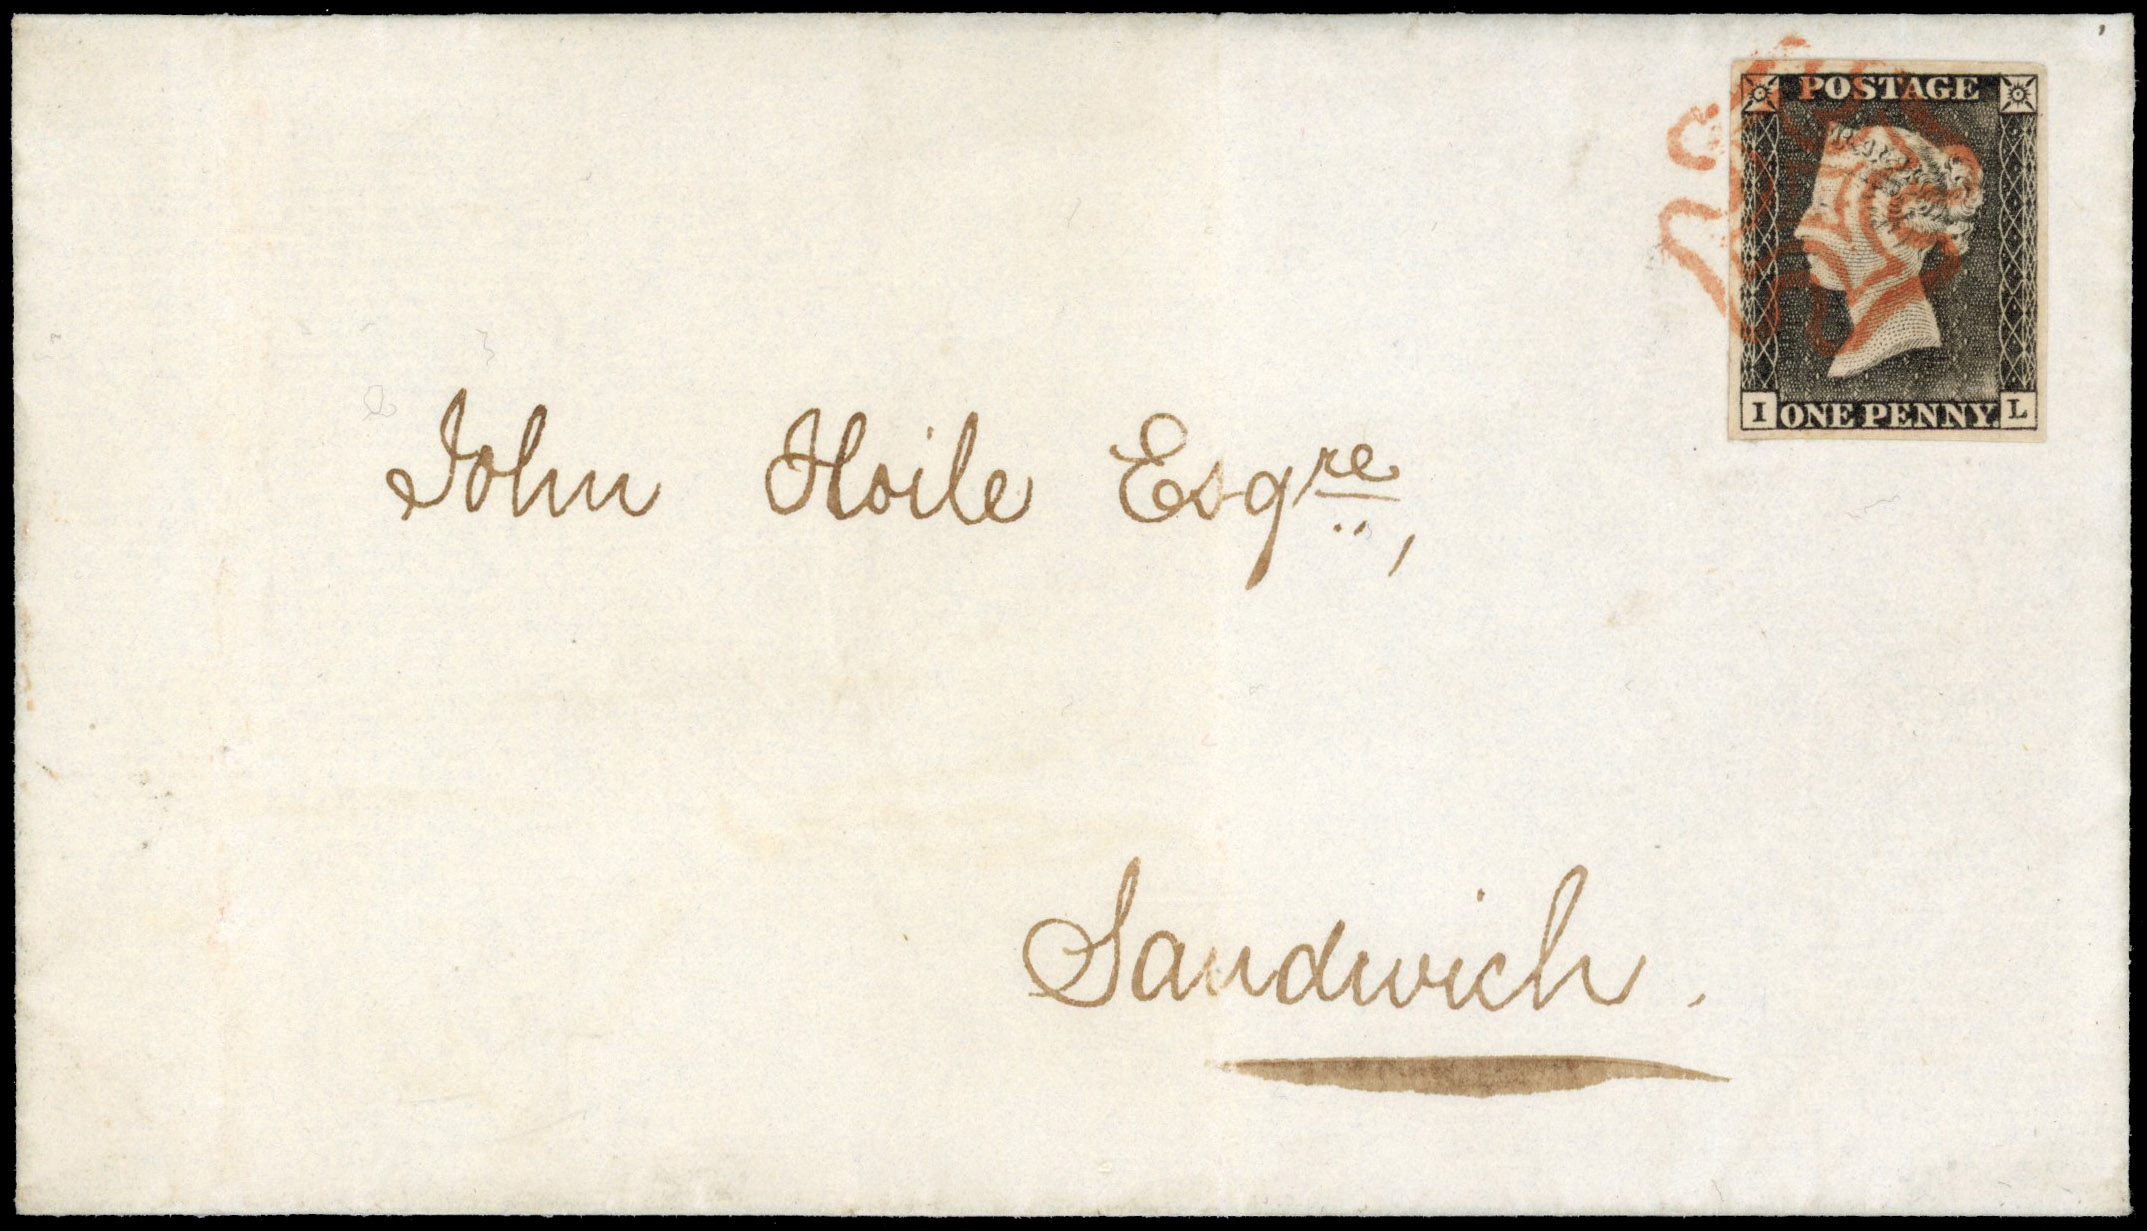 POSTAGE
I ONE PENNY. L
John Hoile Esqre,
Sandwich.